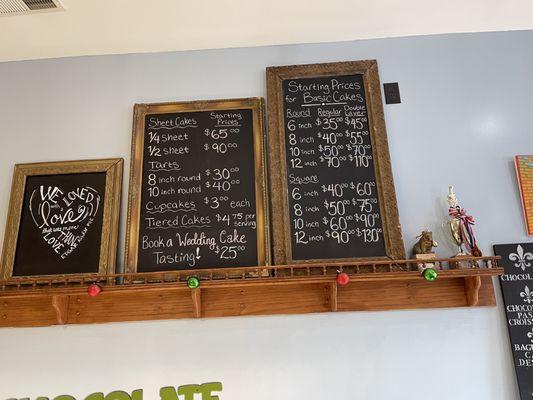 WE
love
Sheet Cakes Starting Prices
1/4 Sheet $65.00
1/2 Sheet $90.00
Tarts
8 inch round $30.00
10 inch round $40.00
Cupcakes $3.00 each
Tiered Cakes $4.75 per serving
Book a Wedding Cake
Tasting! $25.00
Starting Prices
for Basic Cakes
Round Regular Double Layer
6 inch $35.00 $45.00
8 inch $40.00 $55.00
10 inch $50.00 $70.00
12 inch $70.00 $110.00
Square
6 inch $40.00 $60.00
8 inch $50.00 $75.00
10 inch $60.00 $90.00
12 inch $90.00 $130.00
CHOCOL
CHOCOL
PA
CROISS
BAG
CA
DES
CHOCOLATE